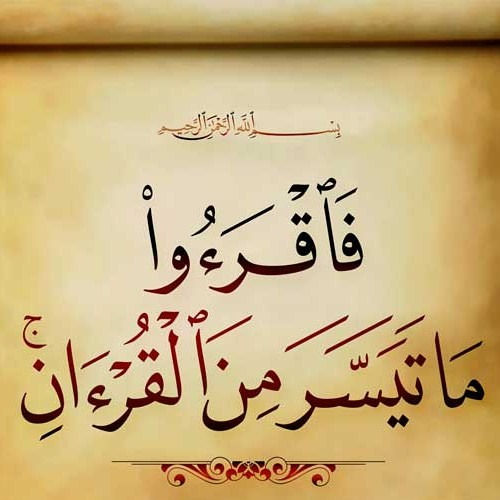 بِسْمِ ٱللَّهِ ٱلرَّحْمَٰنِ ٱلرَّحِيمِ
فَٱقْرَءُوا۟
مَا تَيَسَّرَ مِنَ ٱلْقُرْءَانِ ۚ